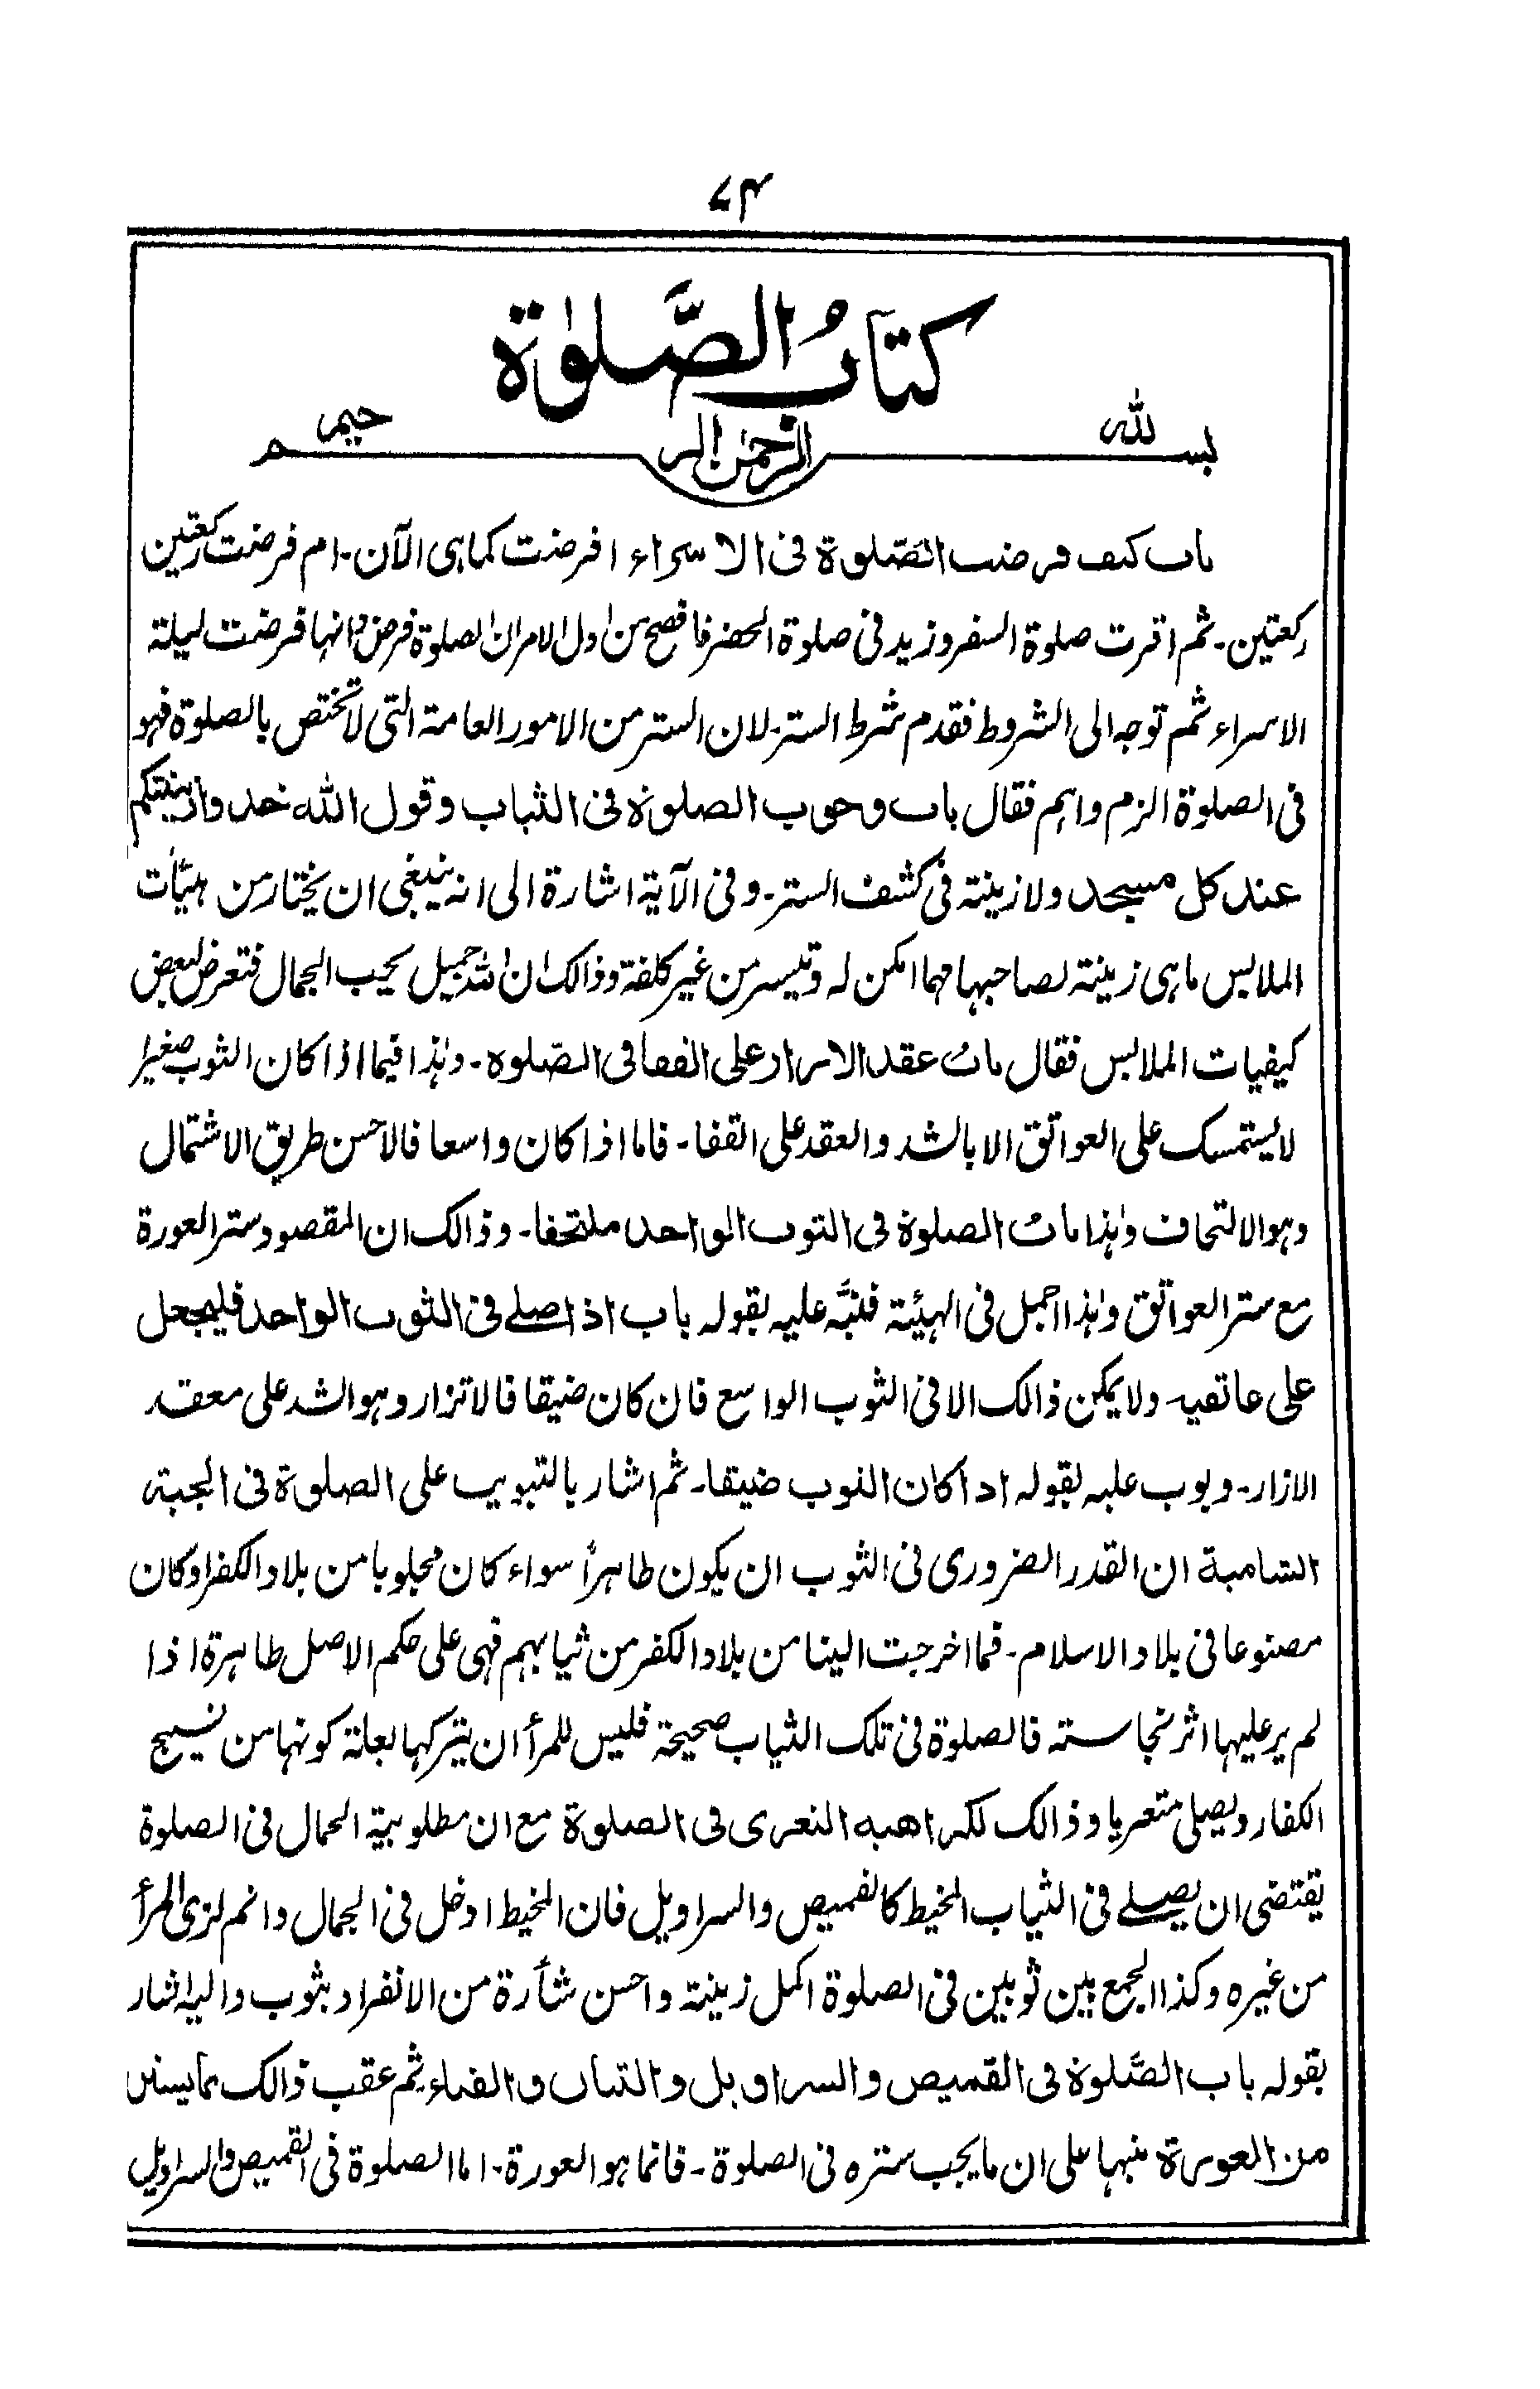 ۷۴
كتابُ الصَّلوٰة
بسم الله الرحمن الرحيم
باب كيف فرضت الصّلوة فى الاسراء افرضت كما هى الآن۔ ام فرضت ركعتين
ركعتين۔ ثم اقرت صلوة السفر وزيد فى صلوة الحضر فافصح من اول الامر ان الصلوة فرض وانها فرضت ليلة
الاسراء ثم توجه الى الشروط فقدم شرط الستر۔ لان الستر من الامور العامة التى لا تختص بالصلوة فهو
فى الصلوة الزم واهم فقال باب وجوب الصلوة فى الثياب وقول الله خذوا زينتكم
عند كل مسجد ولا زينة فى كشف الستر۔ وفى الآية اشارة الى انه ينبغى ان يختار من هيئات
الملابس ما هى زينة لصاحبها مهما امكن له وتيسر من غير كلفة وذالك ان الله جميل يحب الجمال فتعرض لبعض
كيفيات الملابس فقال باب عقد الازار على القفا فى الصّلوة۔ وهذا فيما اذا كان الثوب صغيرا
لا يستمسك على العواتق الا بالشد والعقد على القفا۔ فاما اذا كان واسعا فالاحسن طريق الاشتمال
وهو الالتحاف وهذا باب الصلوة فى الثوب الواحد ملتحفا۔ وذالك ان المقصود ستر العورة
مع ستر العواتق وهذا اجمل فى الهيئة فنبَّه عليه بقوله باب اذا صلے فى الثوب الواحد فليجعل
على عاتقيه ولا يمكن ذالك الا فى الثوب الواسع فان كان ضيقا فالاتزار وهو الشد على معقد
الازار۔ وبوب عليه بقوله اذا كان الثوب ضيقا۔ ثم اشار بالتبويب على الصلوة فى الجبة
الشامية ان القدر الضرورى فى الثوب ان يكون طاهراً سواء كان مجلوبا من بلاد الكفر او كان
مصنوعا فى بلاد الاسلام۔ فما اخرجت الينا من بلاد الكفر من ثيابهم فهى على حكم الاصل طاهرة اذا
لم ير عليها اثر نجاسته فالصلوة فى تلك الثياب صحيحة فليس للمرأ ان يتركها بعلة كونها من نسيج
الكفار ويصلى متعريا وذالك لكراهية التعرى فى الصلوة مع ان مطلوبية الجمال فى الصلوة
يقتضى ان يصلے فى الثياب المخيط كالقميص والسراويل فان المخيط ادخل فى الجمال واتم لزى المرأ
من غيره وكذا الجمع بين ثوبين فى الصلوة اكمل زينة واحسن شأرة من الانفراد بثوب واليه اشار
بقوله باب الصَّلوة فى القميص والسراويل والتبان والقباء ثم عقب ذالك بما يستر
من العورة منبها على ان ما يجب ستره فى الصلوة۔ فانما هو العورة۔ اما الصلوة فى القميص والسراويل